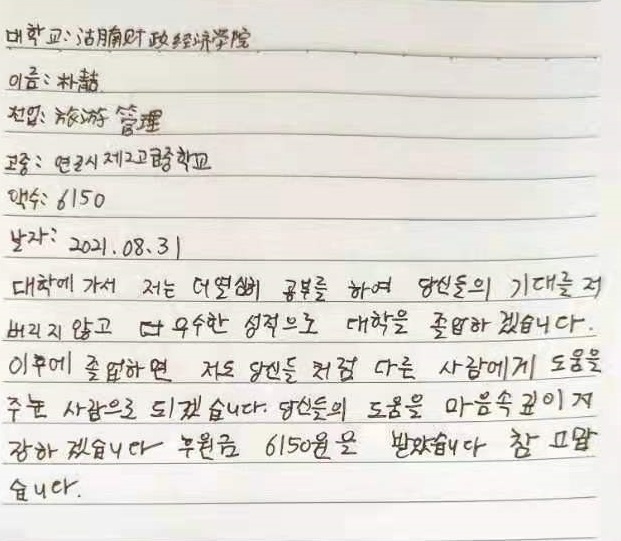 대학교: 沽腩财政经济学院
이름: 朴喆
전업: 旅游管理
고중: 연길시제2고급중학교
액수: 6150
날자: 2021.08.31
대학에 가서 저는 더열심히 공부를 하여 당신들의 기대를 저
버리지 않고 더 우수한 성적으로 대학을 졸업하겠습니다.
이후에 졸업하면 저도 당신들 처럼 다른 사람에게 도움을
주는 사람으로 되겠습니다. 당신들의 도움을 마음속깊이 저
장하겠습니다 후원금 6150원을 받았습니다 참 고맙
습니다.